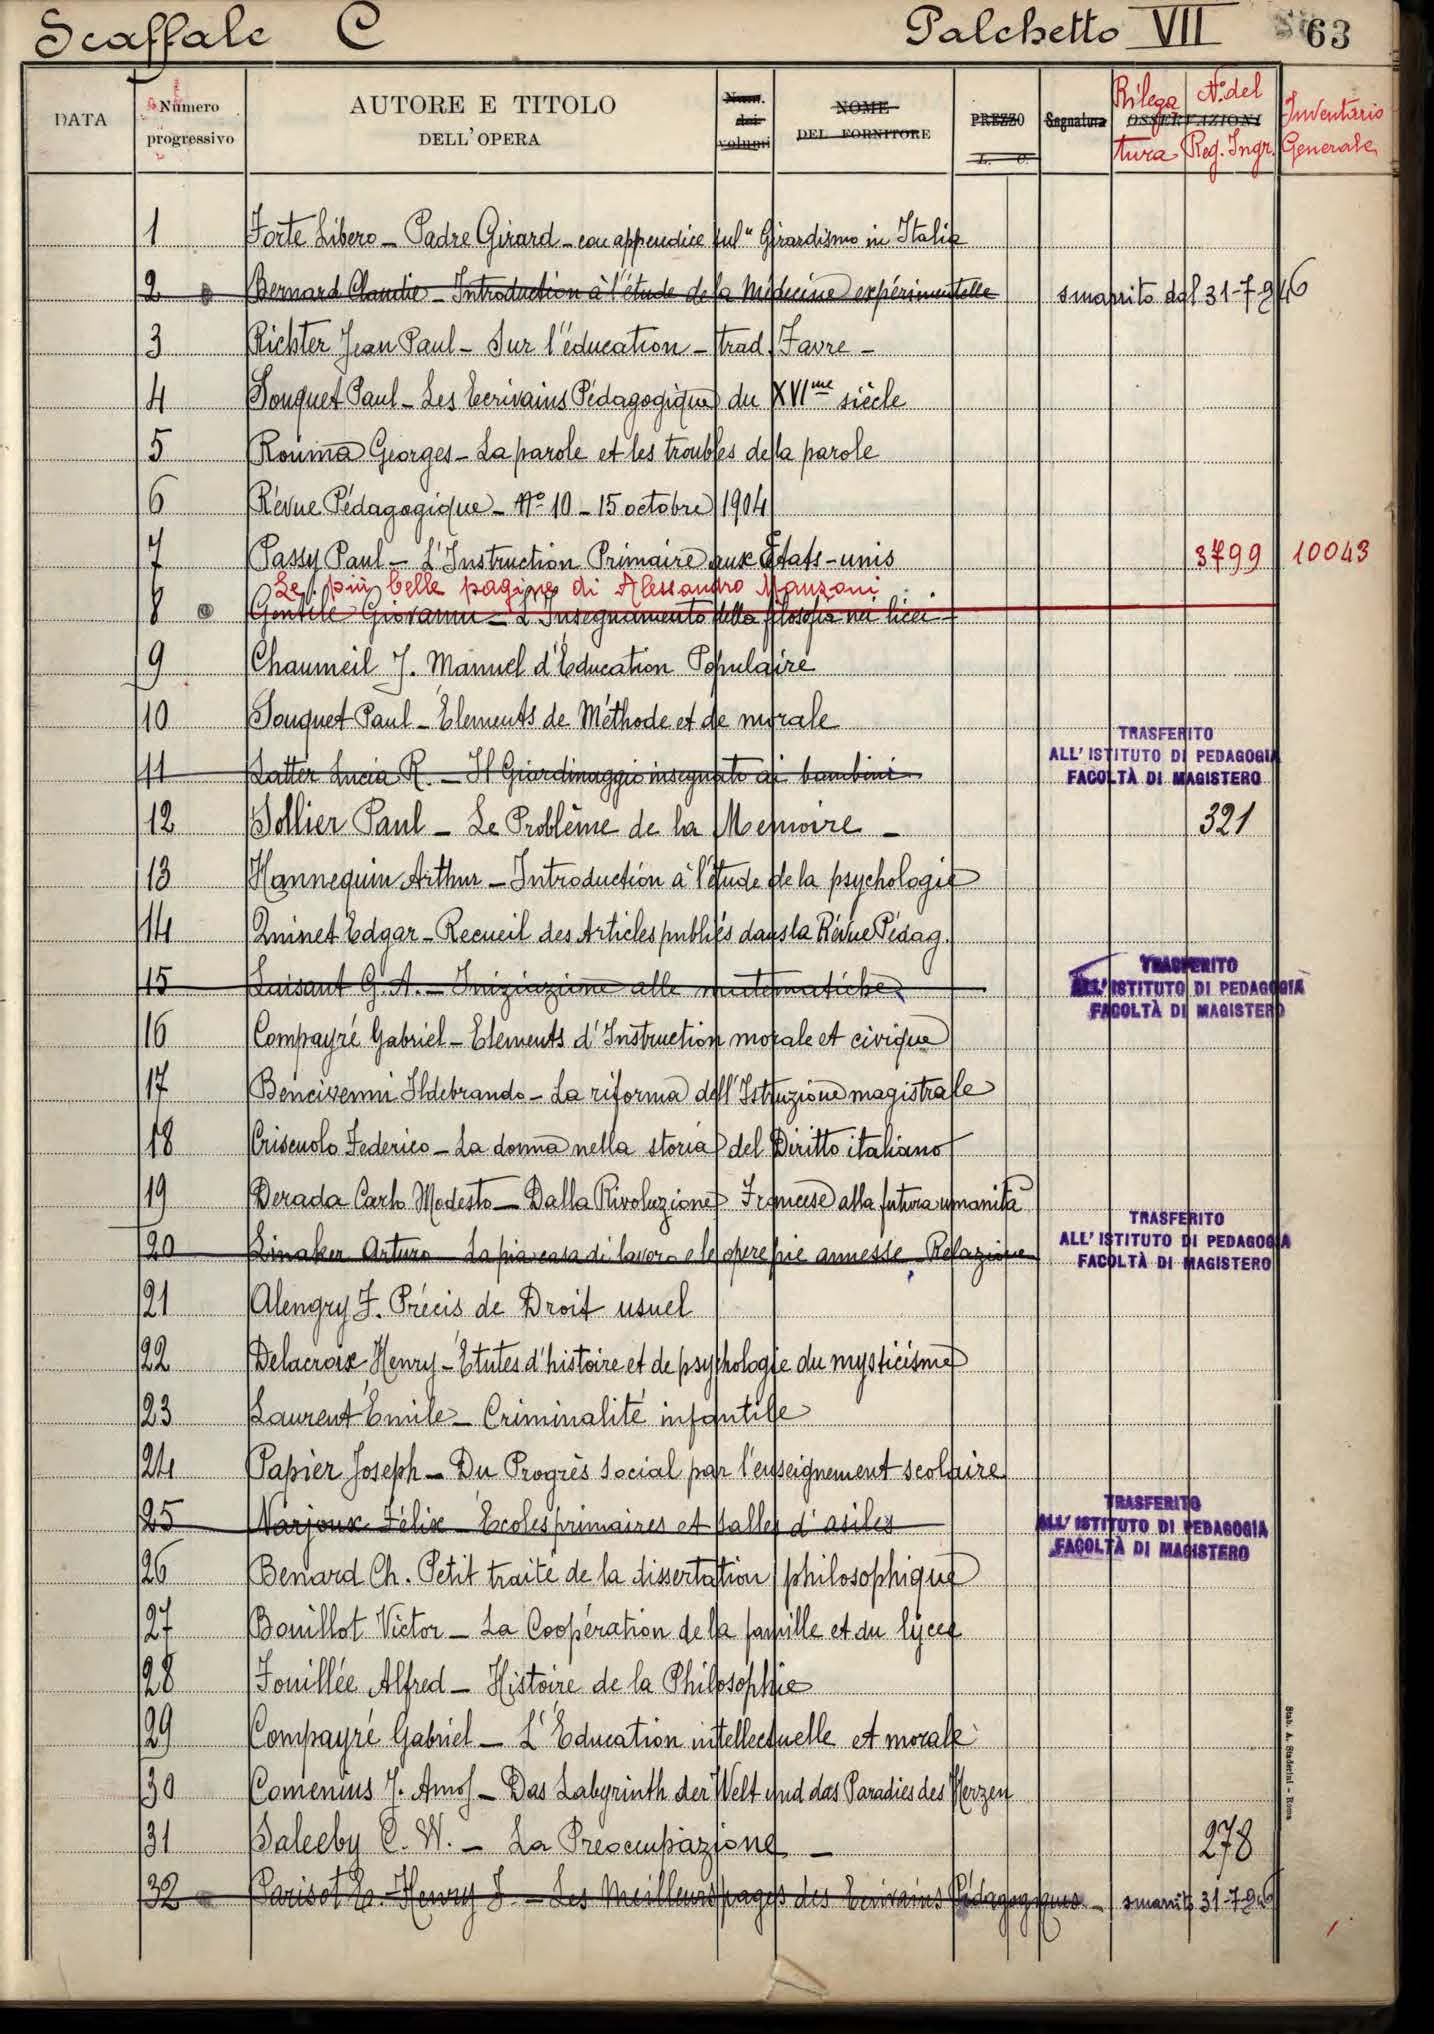 Scaffale C Palchetto VII 63
DATA Numero progressivo AUTORE E TITOLO DELL'OPERA Num. dei volumi NOME DEL FORNITORE PREZZO L. C. Segnatura OSSERVAZIONI Rilegatura N. del Reg. Ingr. Inventario Generale
1 Forte Libero - Padre Girard - con appendice sul "Girardismo in Italia
2 Bernard Claudio - Introduction à l'étude de la Médecine expérimentelle smarrito dal 31-7-946
3 Richter Jean Paul - Sur l'éducation - trad. Favre -
4 Souquet Paul - Les Ecrivains Pédagogique du XVIme siècle
5 Rouma Georges - La parole et les troubles de la parole
6 Révue Pédagogique - No 10 - 15 octobre 1904
7 Passy Paul - L'Instruction Primaire aux États-unis 3799 10043
Le più belle pagine di Alessandro Manzoni
8 Gentile Giovanni - L'Insegnamento della filosofia nei licei
9 Chaumeil J. Manuel d'Éducation Populaire
10 Souquet Paul - Élements de Méthode et de morale
11 Latter Lucia R. - Il Giardinaggio insegnato ai bambini TRASFERITO ALL'ISTITUTO DI PEDAGOGIA FACOLTÀ DI MAGISTERO
12 Sollier Paul - Le Problême de la Memoire - 321
13 Hannequin Arthur - Introduction à l'étude de la psychologie
14 Quinet Edgar - Recueil des Articles publiés dans la Révue Pédag.
15 Laisant G. A. - Iniziazione alle matematiche TRASFERITO ALL'ISTITUTO DI PEDAGOGIA FACOLTÀ DI MAGISTERO
16 Compayré Gabriel - Elements d'Instruction morale et civique
17 Bencivenni Ildebrando - La riforma dell'Istruzione magistrale
18 Criscuolo Federico - La donna nella storia del Diritto italiano
19 Derada Carlo Modesto - Dalla Rivoluzione Francese alla futura umanità
20 Linaker Arturo - La pia casa di lavoro e le opere pie annesse - Relazione TRASFERITO ALL'ISTITUTO DI PEDAGOGIA FACOLTÀ DI MAGISTERO
21 Alengry F. Précis de Droit usuel
22 Delacroix Henry - Étutes d'histoire et de psychologie du mysticisme
23 Laurent Émile - Criminalité infantile
24 Papier Joseph - Du Progrès social par l'enseignement scolaire
25 Narjoux Félix - Écoles primaires et salles d'asiles TRASFERITO ALL'ISTITUTO DI PEDAGOGIA FACOLTÀ DI MAGISTERO
26 Benard Ch. Petit traité de la dissertation philosophique
27 Bouillot Victor - La Coopération de la famille et du lycée
28 Fouillée Alfred - Histoire de la Philosophie
29 Compayré Gabriel - L'Éducation intellectuelle et morale
30 Comenius J. Amos - Das Labyrinth der Welt und das Paradies des Herzen
31 Saleeby C. W. - La Preoccupazione - 278
32 Parisot E. - Henry F. - Les Meilleurs pages des Ecrivains Pédagogiques - smarrito 31-7-946
Stab. A. Staderini - Roma